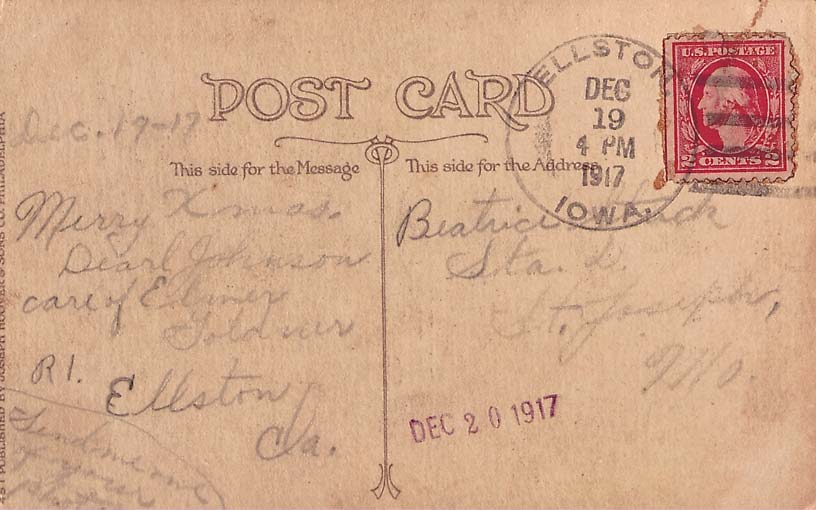 POST CARD
This side for the Message
This side for the Address
ELLSTON,
DEC
19
4 PM
1917
IOWA.
U.S. POSTAGE
2 CENTS 2
Dec. 19-17
Merry Xmas.
Pearl Johnson
care of Elmer
R 1.
Ellston
Ia.
Send me one
of your
photos
Beatrice
Sta. D.
St. Joseph,
Mo.
DEC 20 1917
PUBLISHED BY JOSEPH HOOVER & SONS CO. PHILADELPHIA